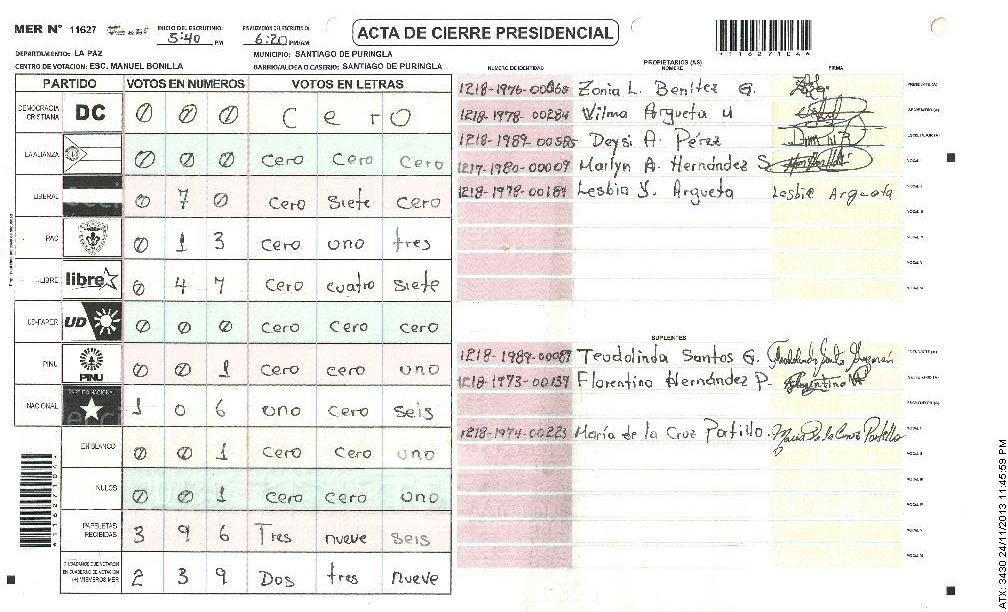 MER N° 11627 INICIO DEL ESCRUTINIO: 5:40 PM FINALIZACION DEL ESCRUTINIO: 6:20 PM/AM ACTA DE CIERRE PRESIDENCIAL
DEPARTAMENTO: LA PAZ MUNICIPIO: SANTIAGO DE PURINGLA
CENTRO DE VOTACION: ESC. MANUEL BONILLA BARRIO/ALDEA O CASERIO: SANTIAGO DE PURINGLA
PARTIDO VOTOS EN NUMEROS VOTOS EN LETRAS
DEMOCRACIA CRISTIANA DC 0 0 0 Cero
LA ALIANZA 0 0 0 cero cero cero
LIBERAL 0 7 0 cero siete cero
PAC 0 1 3 cero uno tres
LIBRE libre 0 4 7 cero cuatro siete
UD-FAPER UD 0 0 0 cero cero cero
PINU PINU 0 0 1 cero cero uno
NACIONAL 1 0 6 uno cero seis
EN BLANCO 0 0 1 cero cero uno
NULOS 0 0 1 cero cero uno
PAPELETAS RECIBIDAS 3 9 6 Tres nueve seis
CIUDADANOS QUE VOTARON EN CUADERNO DE VOTACION (+) MIEMBROS MER 2 3 9 Dos tres nueve
PROPIETARIOS (AS)
NUMERO DE IDENTIDAD NOMBRE FIRMA
1218-1976-00065 Zonia L. Benítez G. PRESIDENTE (A)
1218-1978-00284 Wilma Argueta U SECRETARIO (A)
1218-1989-00585 Deysi A. Pérez ESCRUTADOR (A)
1217-1980-00009 Marlyn A. Hernández S VOCAL I
1218-1978-00187 Lesbia Y. Argueta Lesbia Argueta VOCAL II
SUPLENTES
1218-1989-00089 Teodolinda Santos G. PRESIDENTE (A)
1218-1973-00139 Florentino Hernández P. Florentino SECRETARIO (A)
ESCRUTADOR (A)
1218-1974-00223 María de la Cruz Portillo. Maria De la Cruz Portillo VOCAL I
ATX: 3430 24/11/2013 11:45:59 PM